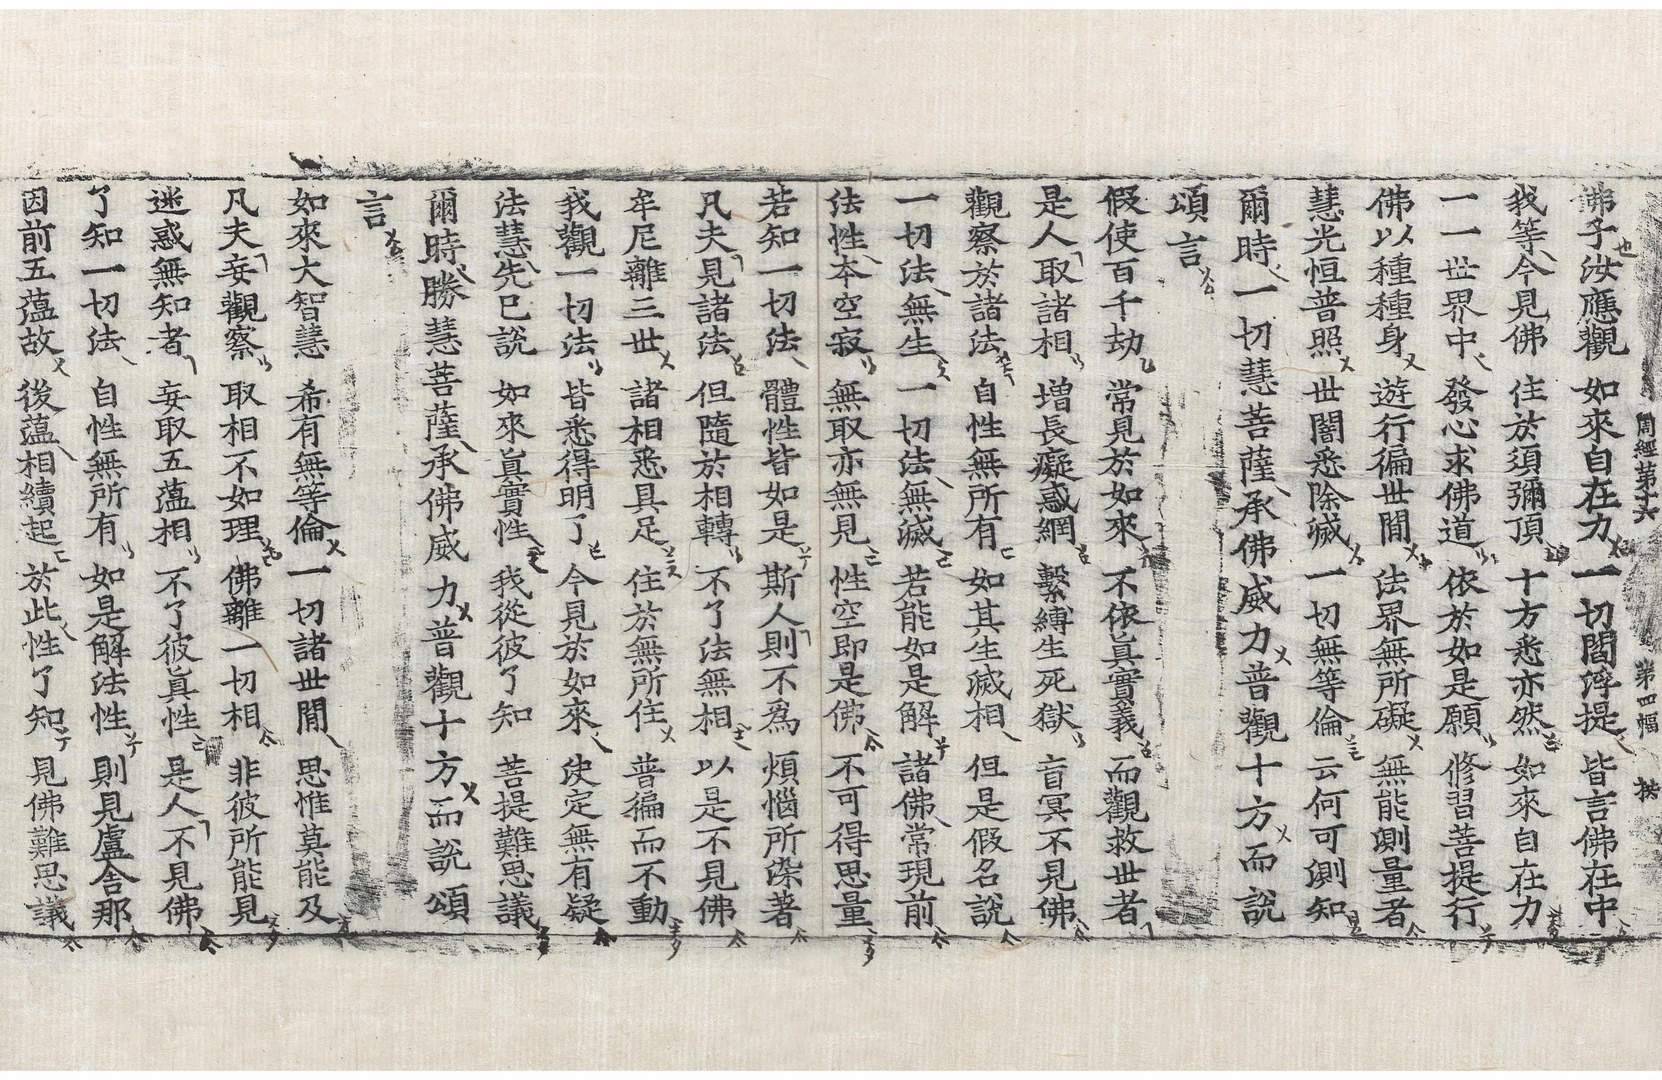 周經第十六 第四幅
佛子汝應觀 如來自在力 一切閻浮提 皆言佛在中
我等今見佛 住於須彌頂 十方悉亦然 如來自在力
一一世界中 發心求佛道 依於如是願 修習菩提行
佛以種種身 遊行徧世間 法界無所礙 無能測量者
慧光恒普照 世闇悉除滅 一切無等倫 云何可測知
爾時一切慧菩薩承佛威力普觀十方而說
頌言
假使百千劫 常見於如來 不依眞實義 而觀救世者
是人取諸相 增長癡惑網 繫縛生死獄 盲冥不見佛
觀察於諸法 自性無所有 如其生滅相 但是假名說
一切法無生 一切法無滅 若能如是解 諸佛常現前
法性本空寂 無取亦無見 性空即是佛 不可得思量
若知一切法 體性皆如是 斯人則不爲 煩惱所染著
凡夫見諸法 但隨於相轉 不了法無相 以是不見佛
牟尼離三世 諸相悉具足 住於無所住 普徧而不動
我觀一切法 皆悉得明了 今見於如來 決定無有疑
法慧先已說 如來眞實性 我從彼了知 菩提難思議
爾時勝慧菩薩承佛威力普觀十方而說頌
言
如來大智慧 希有無等倫 一切諸世間 思惟莫能及
凡夫妄觀察 取相不如理 佛離一切相 非彼所能見
迷惑無知者 妄取五蘊相 不了彼眞性 是人不見佛
了知一切法 自性無所有 如是解法性 則見盧舍那
因前五蘊故 後蘊相續起 於此性了知 見佛難思議